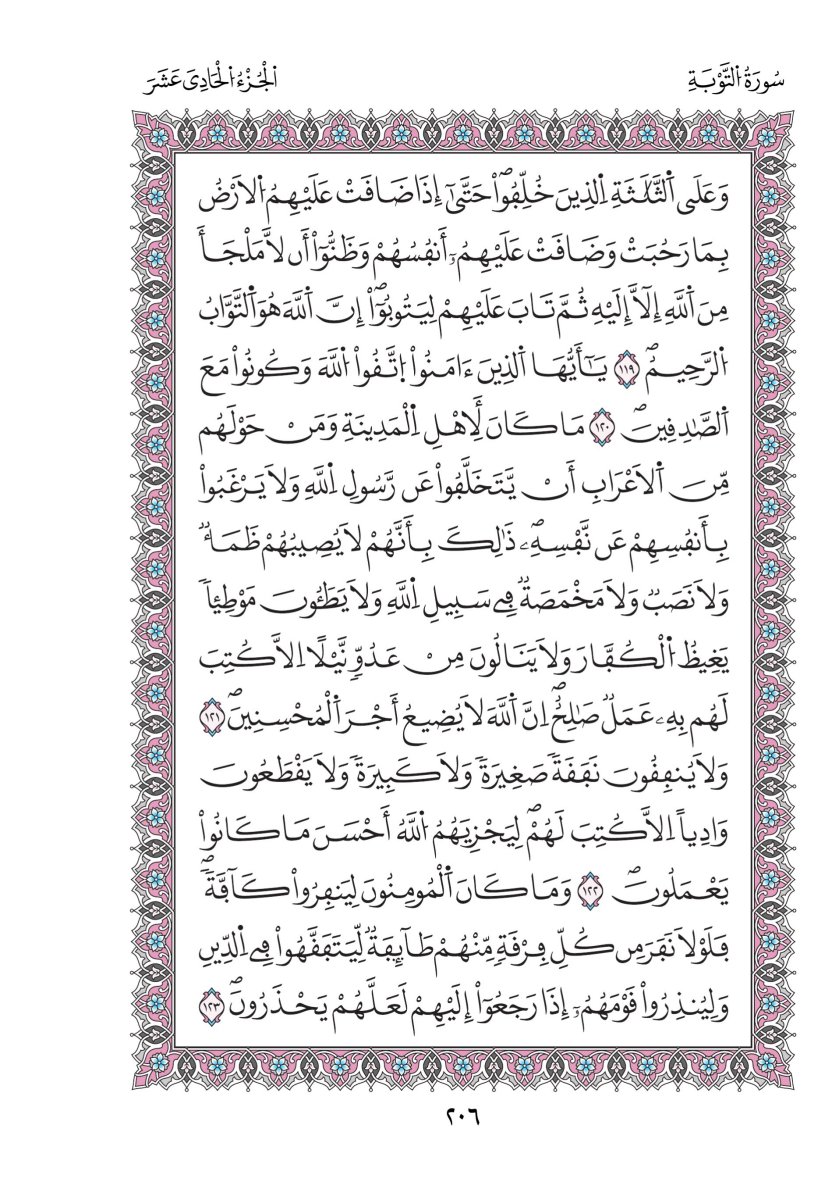 سُورَةُ اُ۬لتَّوْبَةِ
اَ۬لْجُزْءُ اُ۬لْحَادِيَ عَشَرَ
وَعَلَي اَ۬لثَّلَٰثَةِ اِ۬لذِينَ خُلِّفُواْۖ حَتَّيٰٓ إِذَا ضَاقَتْ عَلَيْهِمُ اُ۬لَارْضُ
بِمَا رَحُبَتْ وَضَاقَتْ عَلَيْهِمُۥٓ أَنفُسُهُمْ وَظَنُّوٓاْ أَن لَّا مَلْجَأَ
مِنَ اَ۬للَّهِ إِلَّآ إِلَيْهِ ثُمَّ تَابَ عَلَيْهِمْ لِيَتُوبُوٓاْۖ إِنَّ اَ۬للَّهَ هُوَ اَ۬لتَّوَّابُ
اُ۬لرَّحِيمُۖ ١١٩ يَٰٓأَيُّهَا اَ۬لذِينَ ءَامَنُواْ اُ۪تَّقُواْ اُ۬للَّهَ وَكُونُواْ مَعَ
اَ۬لصَّٰدِقِينَۖ ١٢٠ مَا كَانَ لِأَهْلِ اِ۬لْمَدِينَةِ وَمَنْ حَوْلَهُم
مِّنَ اَ۬لَاعْرَابِ أَنْ يَّتَخَلَّفُواْ عَن رَّسُولِ اِ۬للَّهِ وَلَا يَرْغَبُواْ
بِأَنفُسِهِمْ عَن نَّفْسِهِۦۖ ذَٰلِكَ بِأَنَّهُمْ لَا يُصِيبُهُمْ ظَمَأٞ
وَلَا نَصَبٞ وَلَا مَخْمَصَةٞ فِے سَبِيلِ اِ۬للَّهِ وَلَا يَطَـُٔونَ مَوْطِئاٗ
يَغِيظُ اُ۬لْكُفَّارَ وَلَا يَنَالُونَ مِنْ عَدُوّٖ نَّيْلًا اِلَّا كُتِبَ
لَهُم بِهِۦ عَمَلٞ صَٰلِحٌۖ اِنَّ اَ۬للَّهَ لَا يُضِيعُ أَجْرَ اَ۬لْمُحْسِنِينَۖ ١٢١
وَلَا يُنفِقُونَ نَفَقَةٗ صَغِيرَةٗ وَلَا كَبِيرَةٗ وَلَا يَقْطَعُونَ
وَادِياً اِلَّا كُتِبَ لَهُمْۖ لِيَجْزِيَهُمُ اُ۬للَّهُ أَحْسَنَ مَا كَانُواْ
يَعْمَلُونَۖ ١٢٢ وَمَا كَانَ اَ۬لْمُومِنُونَ لِيَنفِرُواْ كَآفَّةٗۖ
فَلَوْلَا نَفَرَ مِن كُلِّ فِرْقَةٖ مِّنْهُمْ طَآئِفَةٞ لِّيَتَفَقَّهُواْ فِے اِ۬لدِّينِ
وَلِيُنذِرُواْ قَوْمَهُمُۥٓ إِذَا رَجَعُوٓاْ إِلَيْهِمْ لَعَلَّهُمْ يَحْذَرُونَۖ ١٢٣
٢٠٦